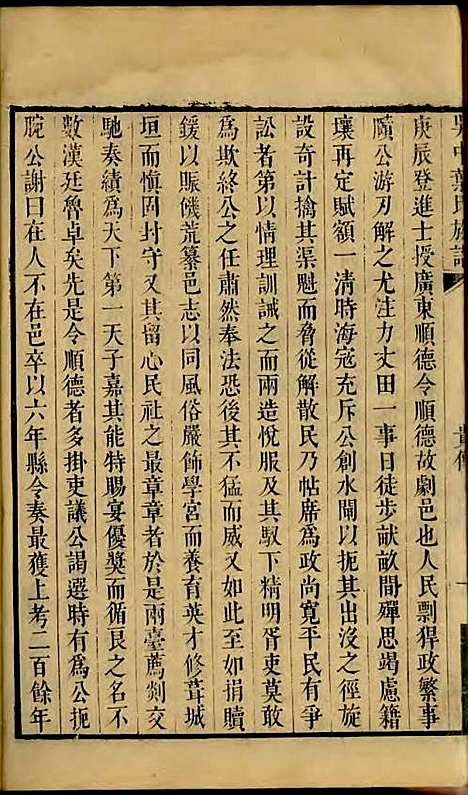 吳中葉氏族譜
庚辰登進士授廣東順德令順德故劇邑也人民剽猂政繁事
隤公游刃解之尤注力丈田一事日徒步献畝間殫思竭慮籍
壤再定賦額一清時海寇充斥公創水閘以扼出沒之徑旋
設奇計擒其渠魁而脅從解散民乃帖席為政尚寬平民有爭
訟者第以情理訓誡之而兩造悅服及其馭下精明胥吏莫敢
為欺終公之任肅然奉法恐後其不猛而威又如此至如捐贖
鍰以賑饑荒纂邑志以同風俗嚴飾學宮而養育英才修葺城
垣而愼固封守又其留心民社之最章章者於是兩臺薦剡交
馳奏績為天下第一天子嘉其能特賜宴優奬而循良之名不
數漢廷魯卓矣先是令順德者多掛吏議公謁選時有為公扼
腕公謝曰在人不在邑卒以六年縣令奏最獲上考二百餘年